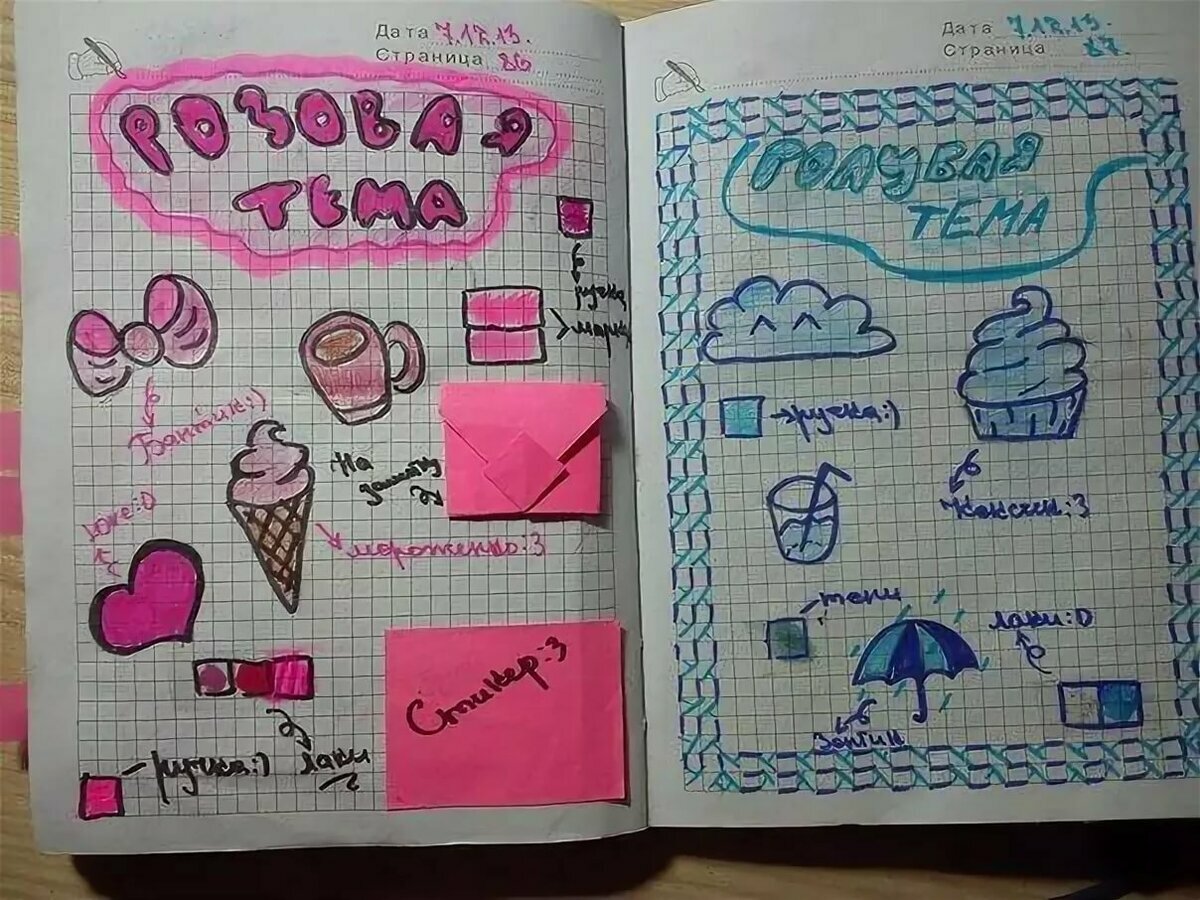 Дата 7.12.13.
Страница 86
РОЗОВАЯ
ТЕМА
ручка
Бантик:)
На
заметку
мороженко:3
Стикер:3
ручка:)
лаки
Дата 7.12.13.
Страница 87
ГОЛУБАЯ
ТЕМА
ручка:)
Кексик:3
тени
лаки:D
Зонтик